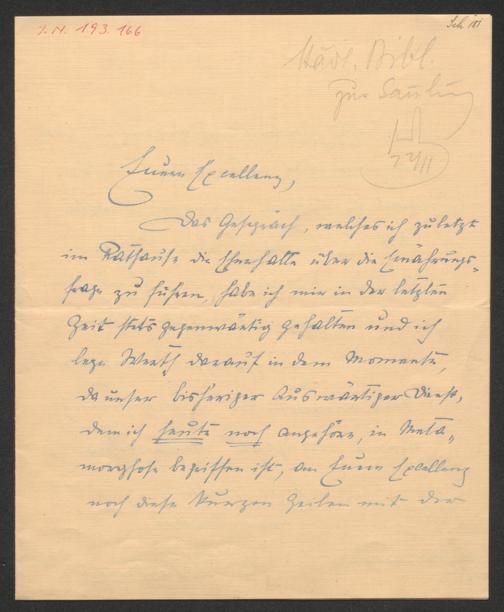 I. N. 193.166
Städt. Bibl.
zur Samlung
22/II
Euere Excellenz,
Das Gespräch, welches ich zuletzt
im Rathause die Ehre hatte über die Ernährungs-
frage zu führen, habe ich mir in der letzten
Zeit stets gegenwärtig gehalten und ich
lege Werth darauf in dem Momente,
da unser bisheriger Auswärtiger Dienst,
dem ich heute noch angehöre, in Meta-
morphose begriffen ist, an Euere Excellenz
noch diese kurzen Zeilen mit der